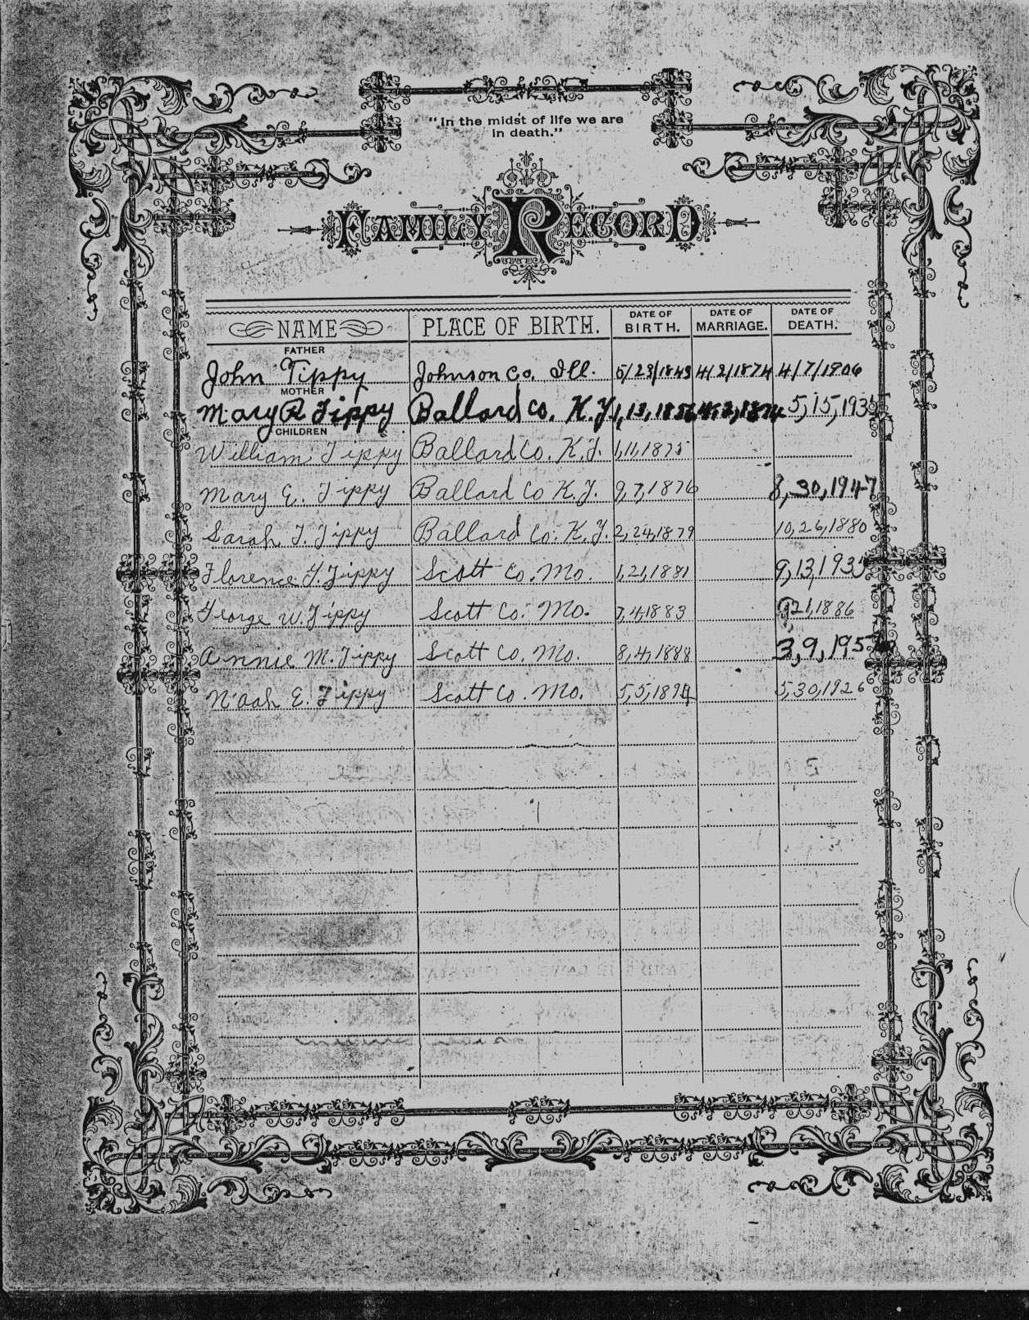 "In the midst of life we are
in death."
FAMILY RECORD
NAME PLACE OF BIRTH. DATE OF BIRTH. DATE OF MARRIAGE. DATE OF DEATH.
FATHER
John Tippy Johnson Co, Ill. 5/23/1843 4/2/1874 4/7/1906
MOTHER
Mary R Tippy Ballard Co. K.Y. 1,13,1856 4,2,1874 5,15,193
CHILDREN
William Tippy Ballard Co. K.Y. 1,11,1875
Mary E. Tippy Ballard Co K.Y. 9,7,1876 8,30,1947
Sarah F. Tippy Ballard Co. K.Y. 2,24,1879 10,26,1880
Florence Tippy Scott Co, Mo. 1,21,1881 9,13,193
George W. Tippy Scott Co. Mo. 7,4,1883 9,21,1886
Annie M. Tippy Scott Co, Mo. 8,4,1888 3,9,195
Noah E. Tippy Scott Co. Mo. 5,5,1894 5,30,1926